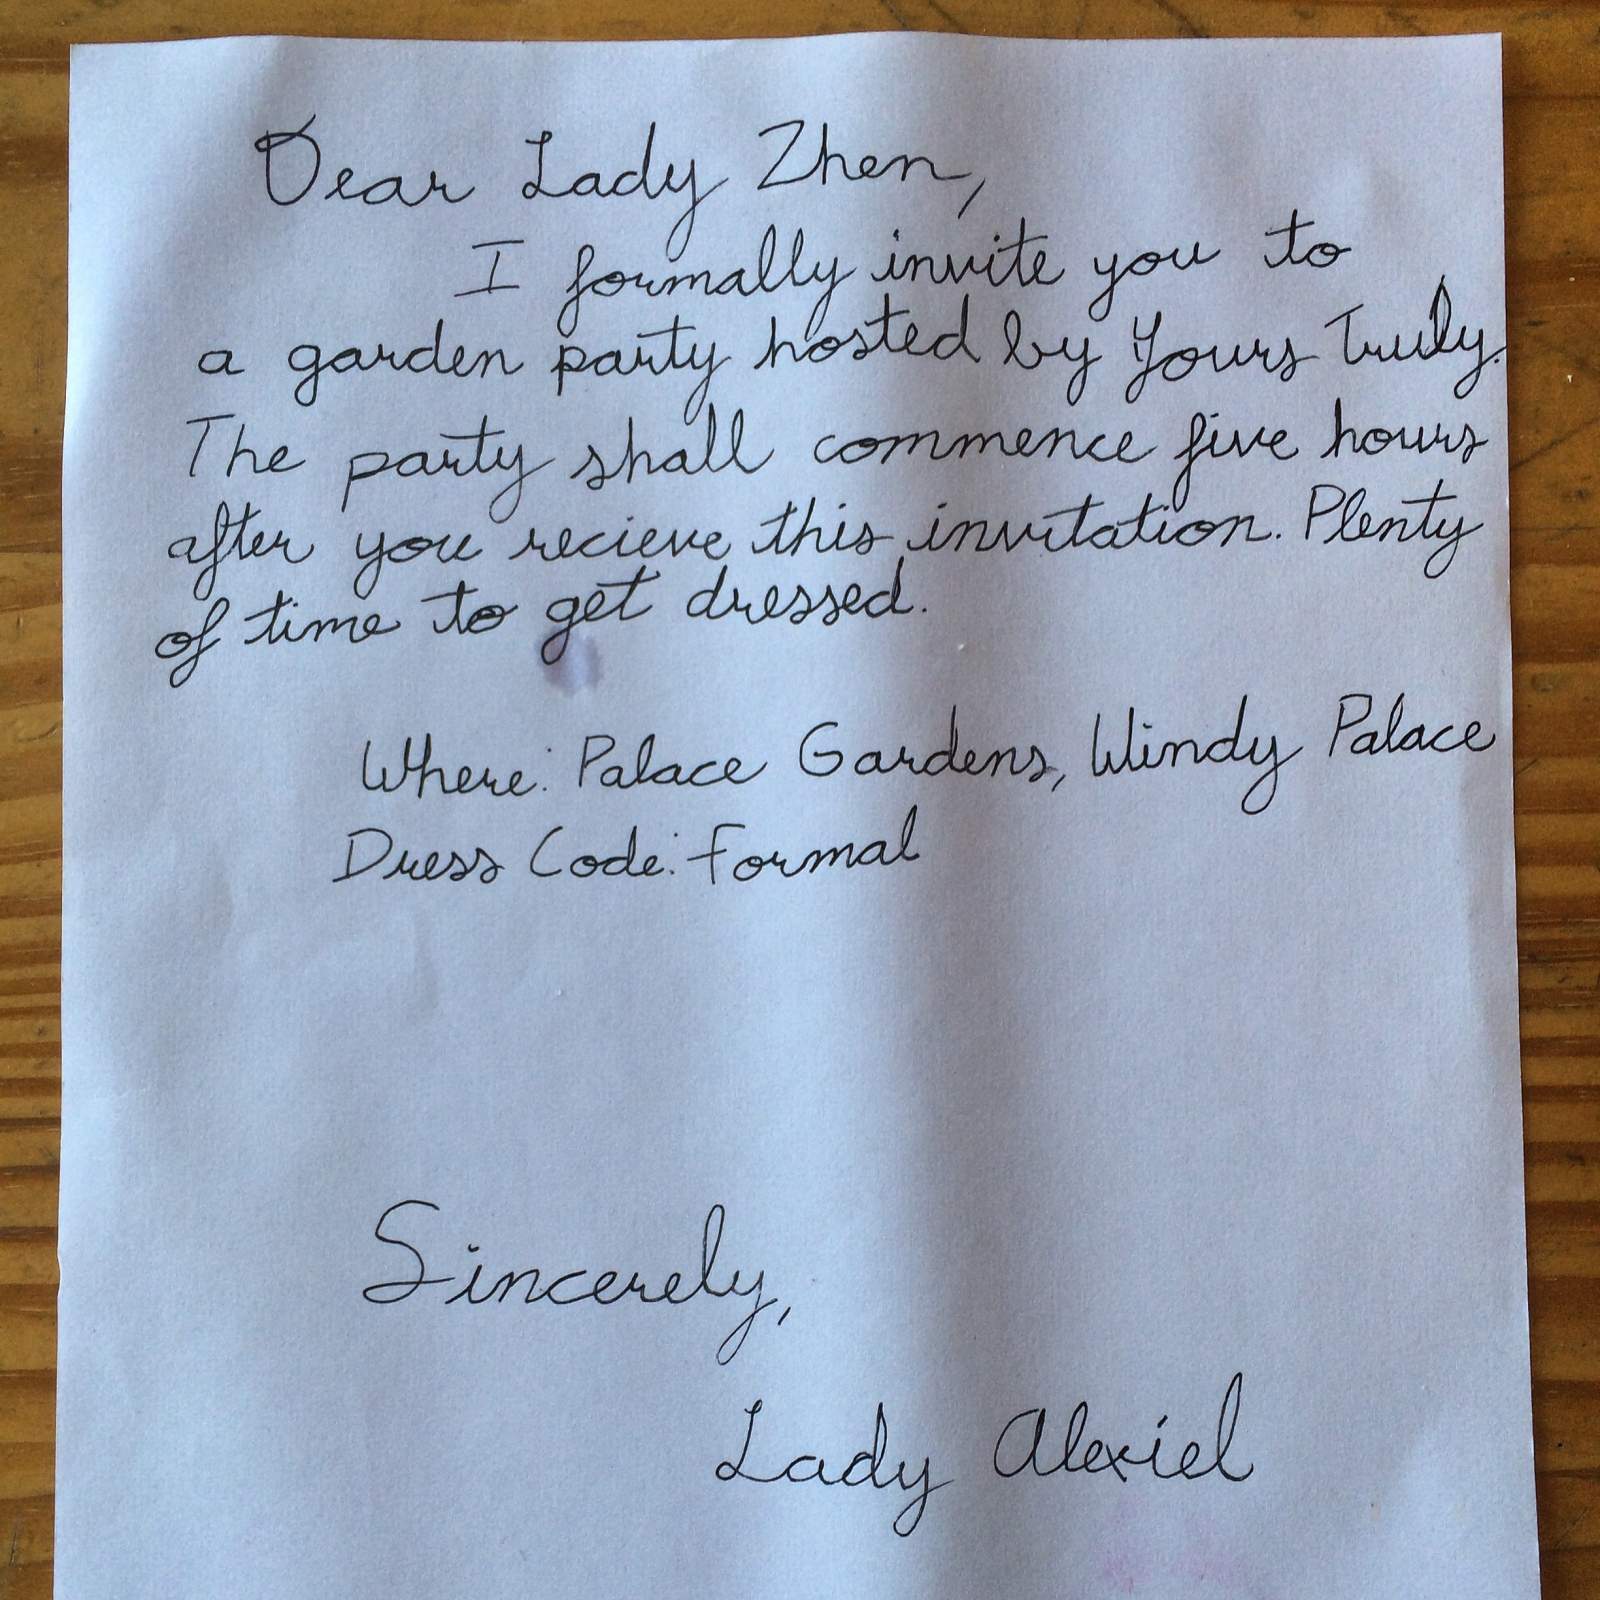 Dear Lady Zhen,
I formally invite you to
a garden party hosted by Yours Truly.
The party shall commence five hours
after you recieve this invitation. Plenty
of time to get dressed.
Where: Palace Gardens, Windy Palace
Dress Code: Formal
Sincerely,
Lady Alexiel